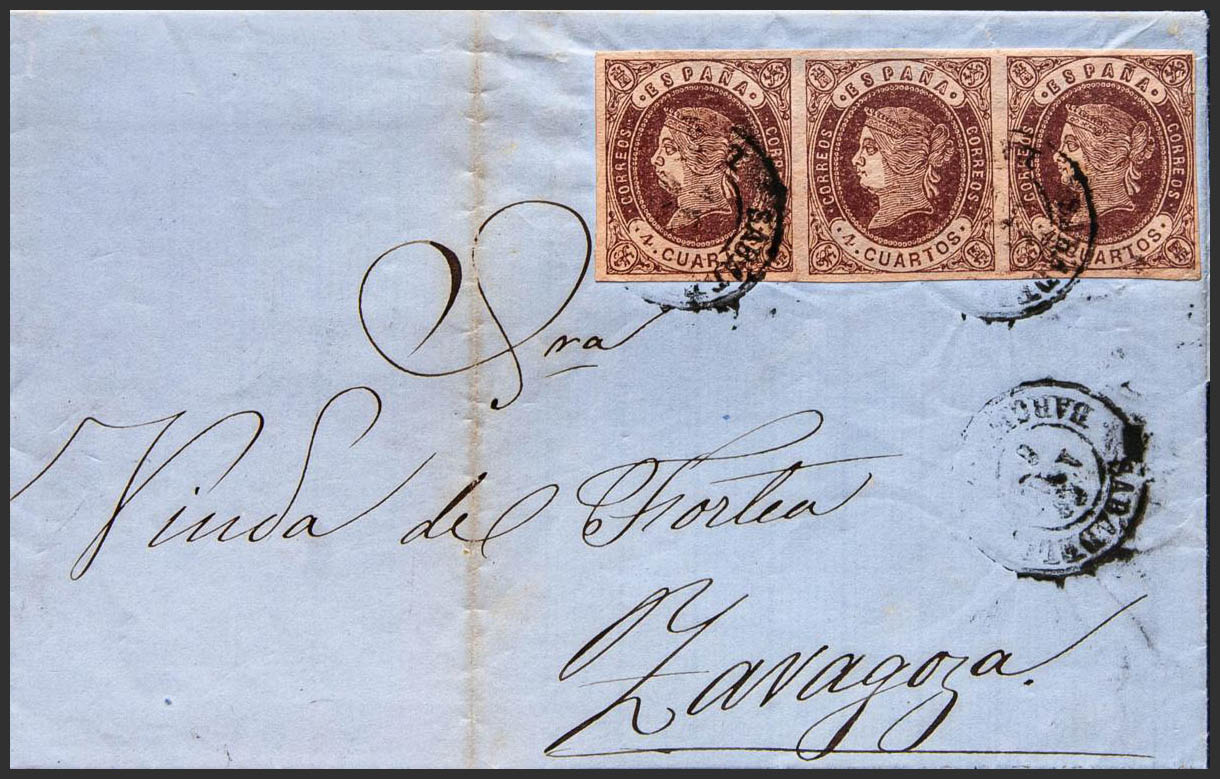 ·ESPAÑA· ·ESPAÑA· ·ESPAÑA·
CORREOS CORREOS CORREOS CORREOS CORREOS CORREOS
·4· CUARTOS· ·4· CUARTOS· CUARTOS·
Sra
Viuda de Fortea
Zaragoza.